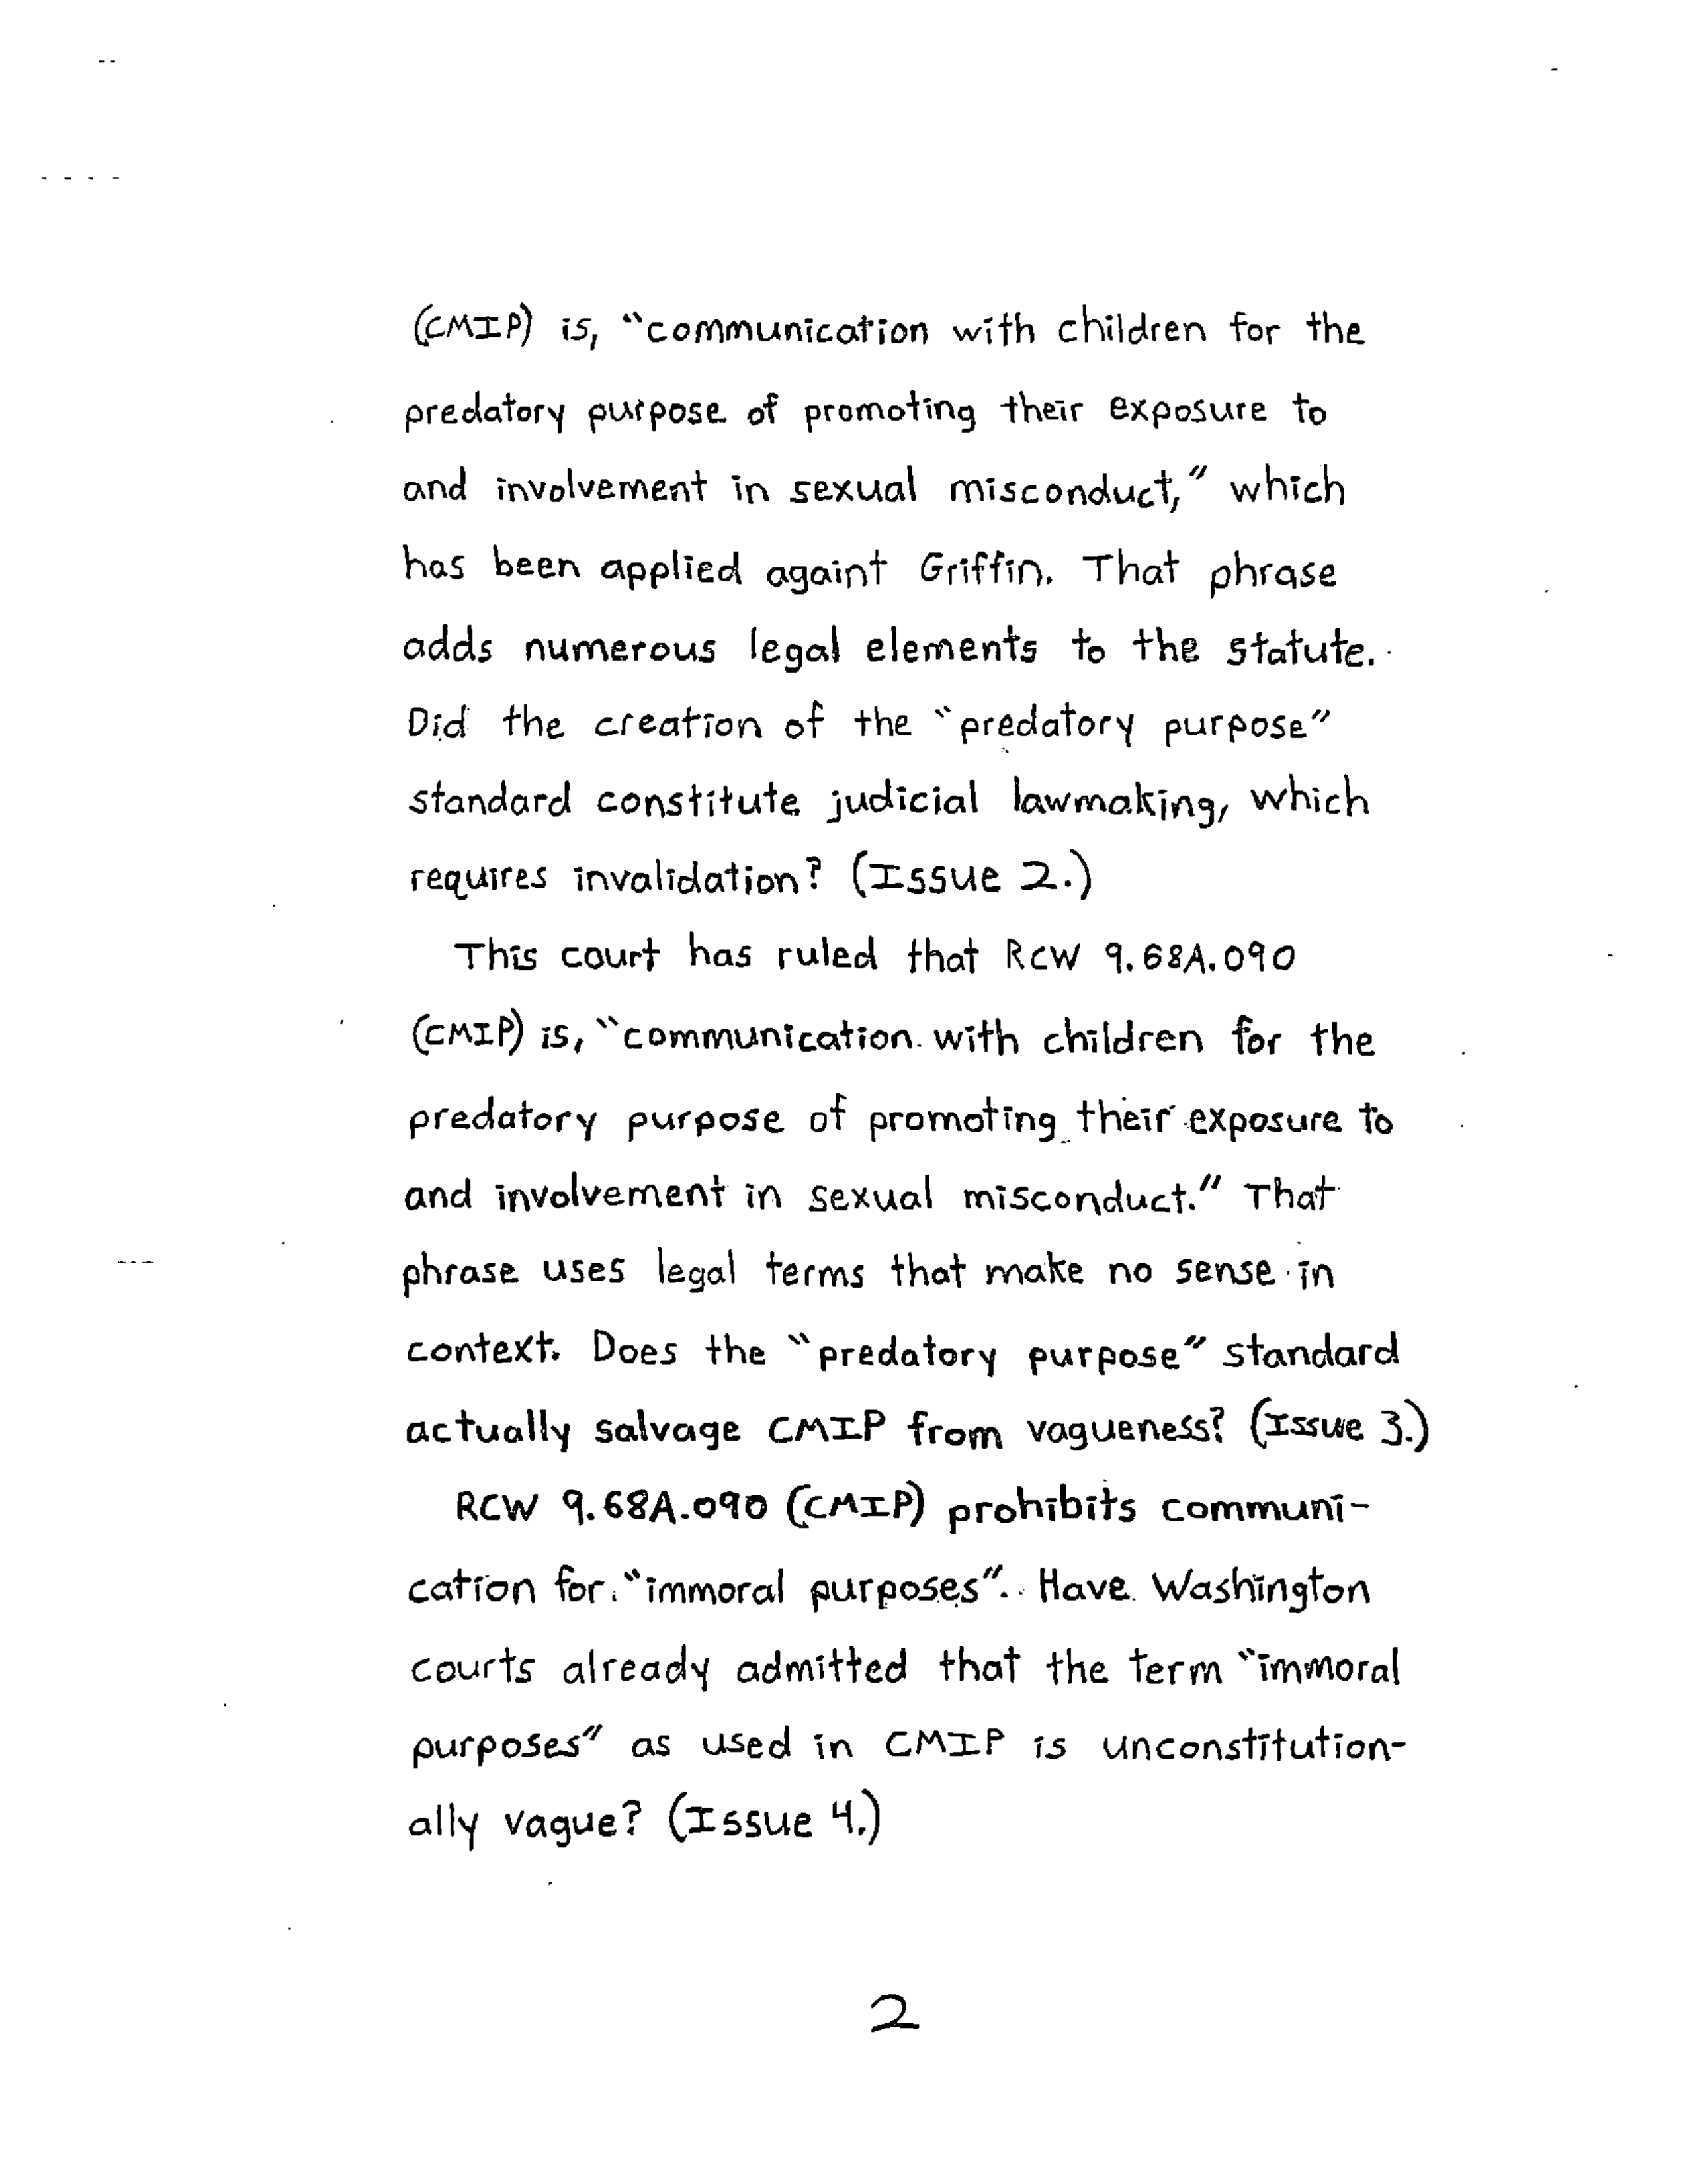 (CMIP) is, "communication with children for the
predatory purpose of promoting their exposure to
and involvement in sexual misconduct," which
has been applied againt Griffin. That phrase
adds numerous legal elements to the statute.
Did the creation of the "predatory purpose"
standard constitute judicial lawmaking, which
requires invalidation? (Issue 2.)
This court has ruled that RCW 9.68A.090
(CMIP) is, "communication with children for the
predatory purpose of promoting their exposure to
and involvement in sexual misconduct." That
phrase uses legal terms that make no sense in
context. Does the "predatory purpose" standard
actually salvage CMIP from vagueness? (Issue 3.)
RCW 9.68A.090 (CMIP) prohibits communi-
cation for "immoral purposes". Have Washington
courts already admitted that the term "immoral
purposes" as used in CMIP is unconstitution-
ally vague? (Issue 4.)
2